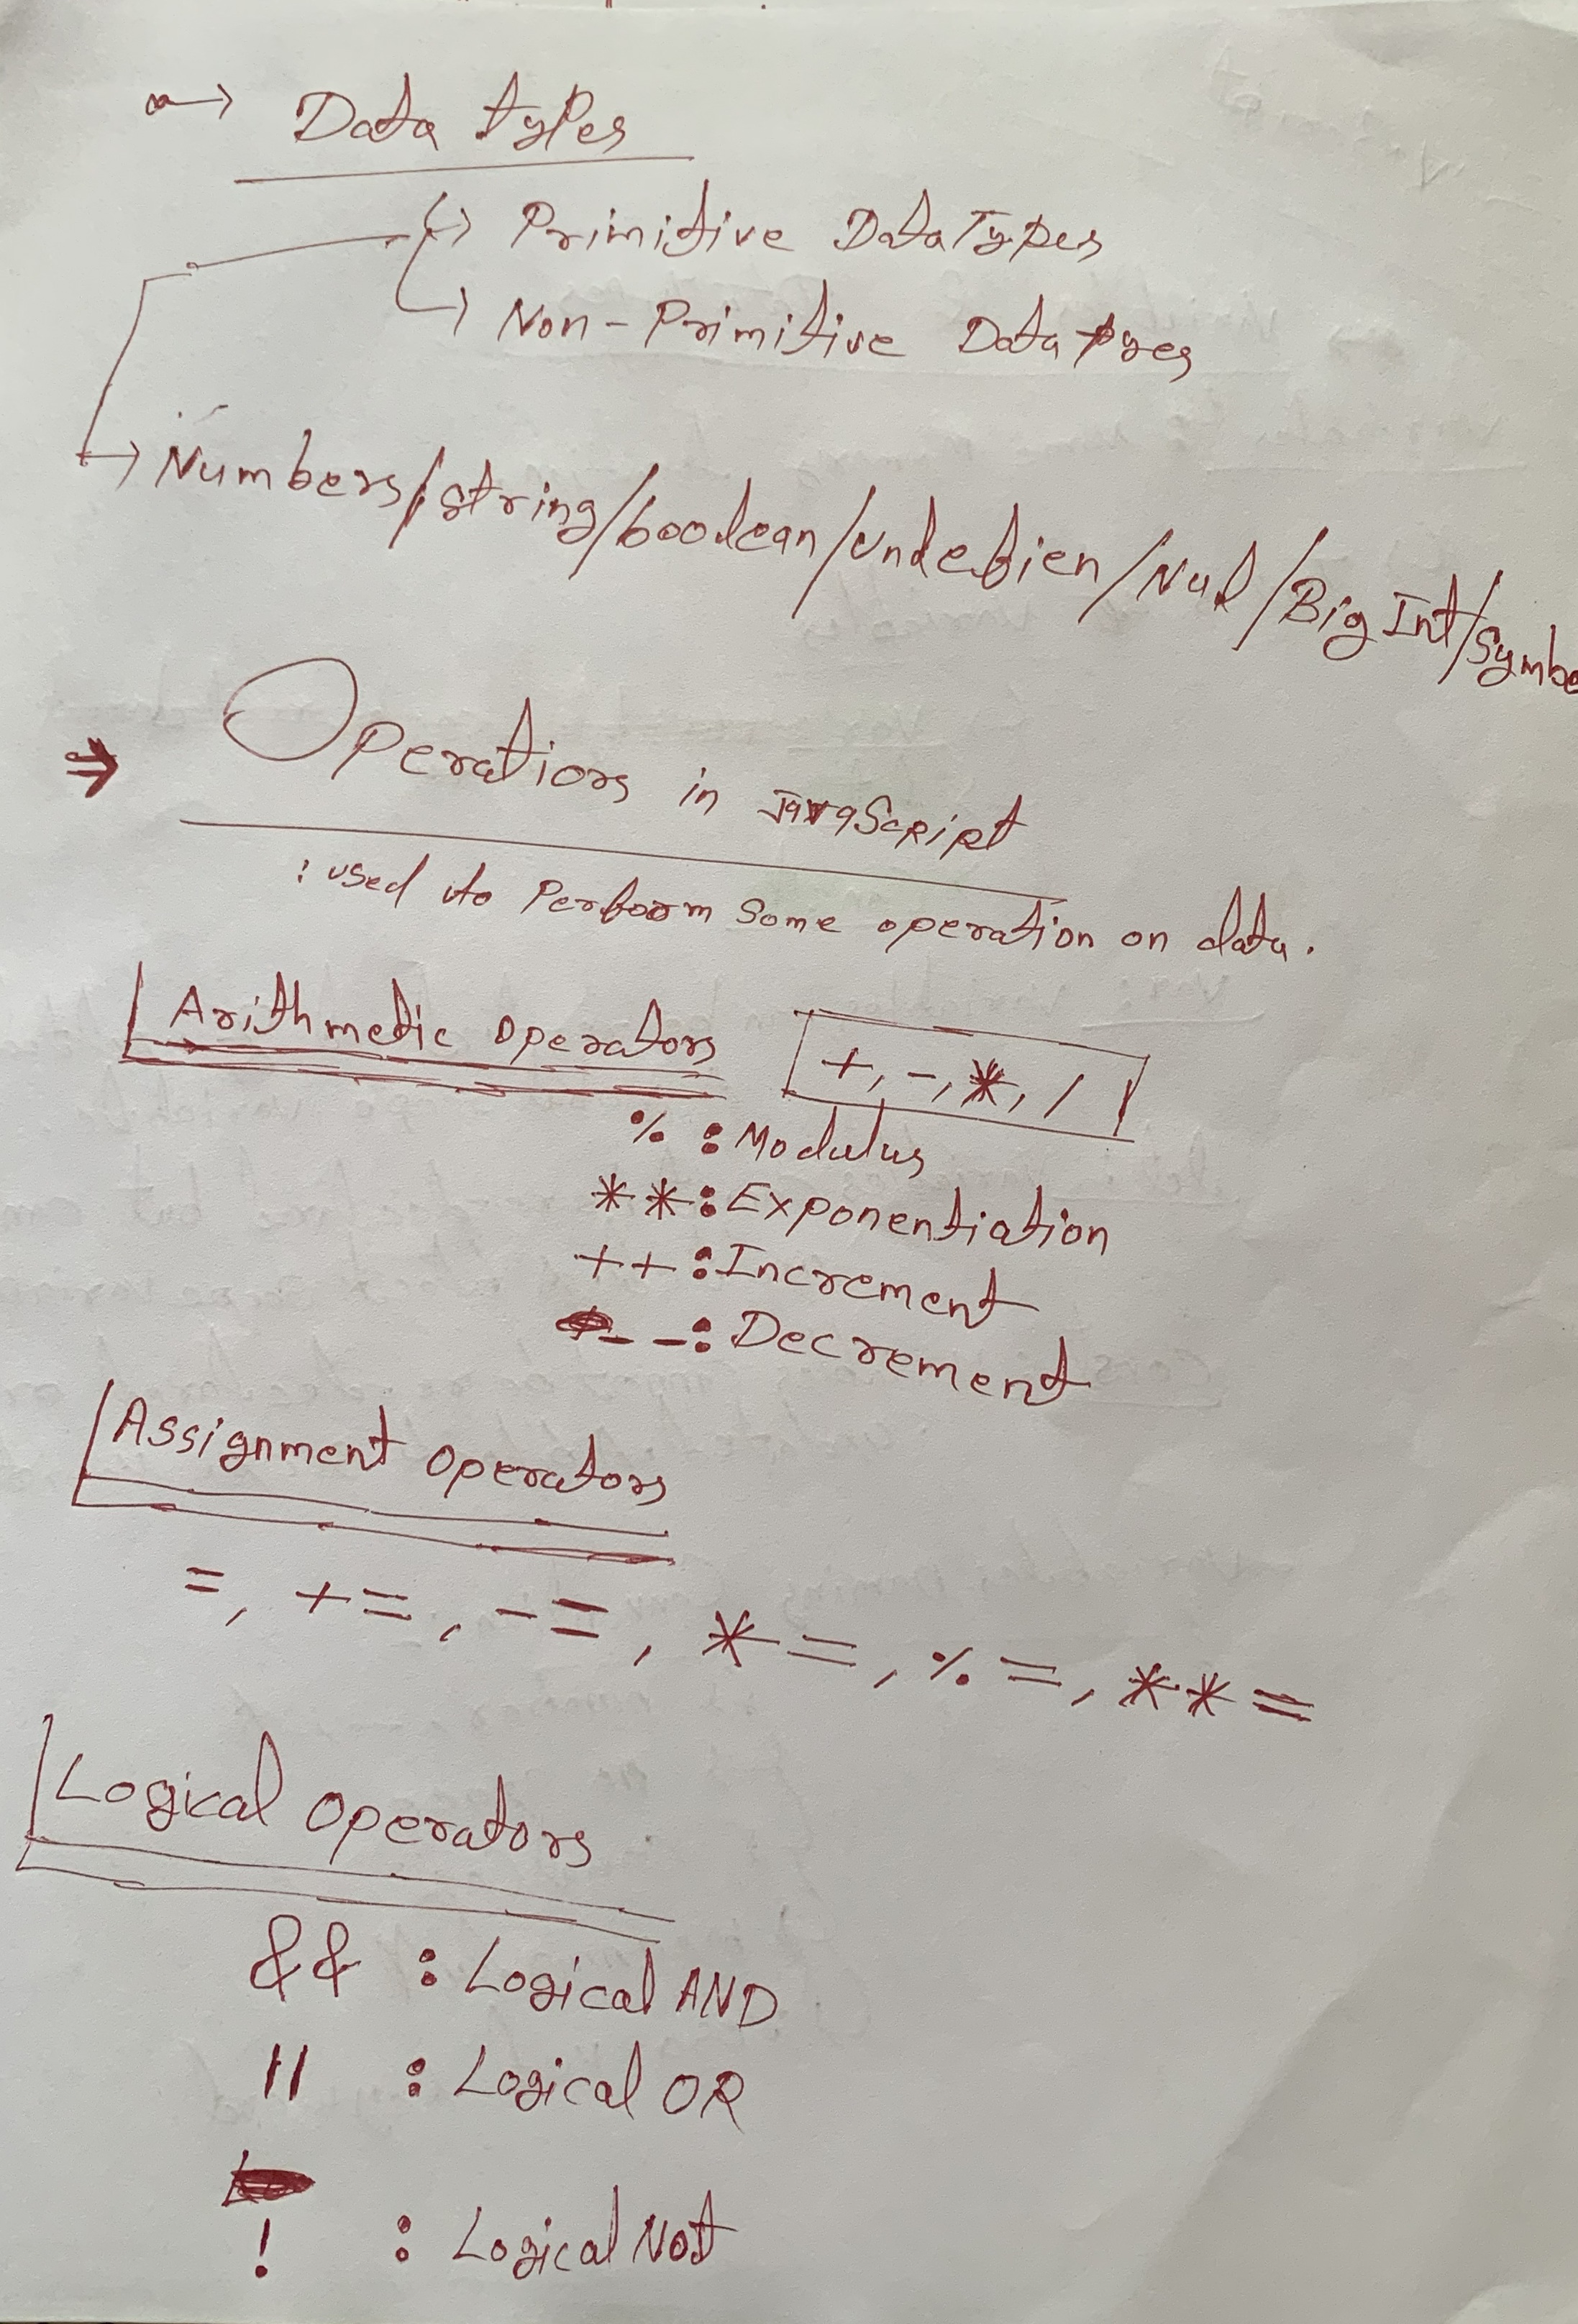 Data types
Primitive DataTypes
Non-Primitive Data types
Numbers/string/boolean/undefien/Null/BigInt/Symbo
Operations in JavaScript
: used to Perform Some operation on data.
Arithmetic operators +, -, *, /
% : Modulus
** : Exponentiation
++ : Increment
-- : Decrement
Assignment operators
=, +=, -=, *=, %=, **=
Logical operators
&& : Logical AND
|| : Logical OR
! : Logical Not